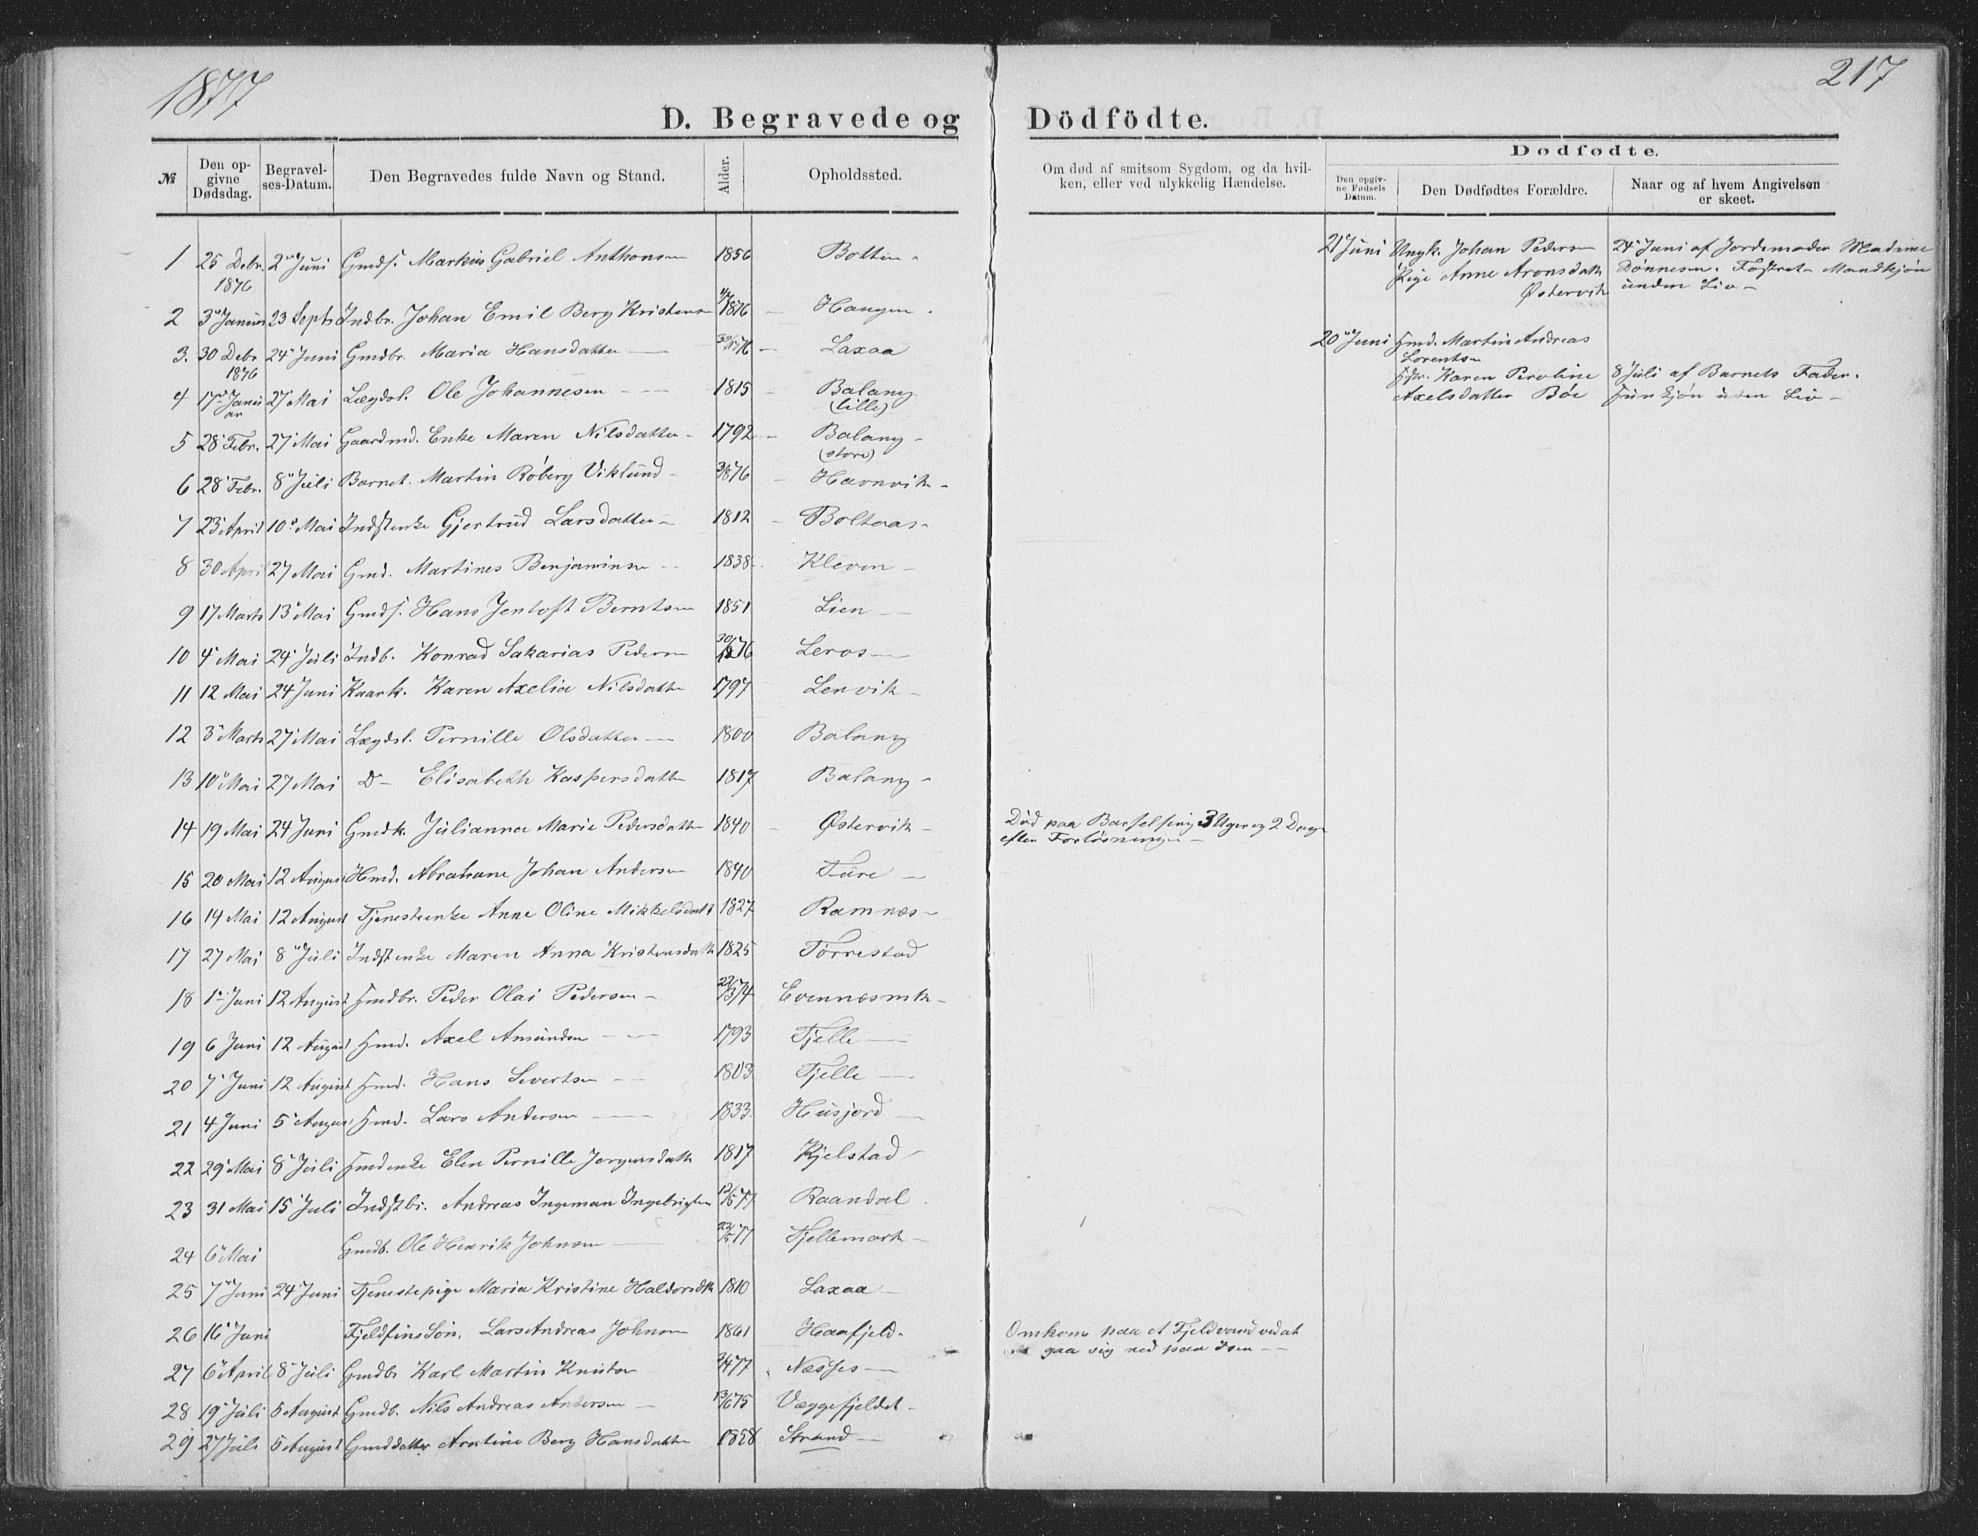 1877
217
D. Begravede og Dödfödte.
№
Den opgivne Dødsdag.
Begravelses-Datum.
Den Begravedes fulde Navn og Stand.
Alder.
Opholdssted.
Om død af smitsom Sygdom, og da hvilken, eller ved ulykkelig Hændelse.
Dødfødte.
Den opgivne Fødsels Datum.
Den Dødfødtes Forældre.
Naar og af hvem Angivelsen er skeet.
1 25 Debr. 2 Juni Gmds. Markus Gabriel Anthonsen 1856 Botten
1876
2 3 Januar 23 Septr Indbr. Johan Emil Berg Kristensen 1876 Haugen
3. 30 Debr 24 Juni Gmdbr. Maria Hansdatter Laxaa
1876
4 17 Januar 27 Mai Lægdsl. Ole Johannesen 1815 Balang
(lille)
5 28 Febr. 27 Mai Gaardmd. Enke Maren Nilsdatter 1792 Balang
(store)
6 28 Febr. 8 Juli Barnet. Martin Roberg Viklund Havnvik
7 23 April 10 Mai Indstenke Gjertrud Larsdatter 1812 Boltaas
8 30 April 27 Mai Gmd. Martines Benjaminsen 1838 Kleven
9 17 Marts 13 Mai Gmds. Hans Jentoft Berntsen 1851 Lien
10 4 Mai 24 Juli Indb. Konrad Sakarias Pedersen Leros
11 12 Mai 24 Juni Kaark. Karen Axelia Nilsdatter 1797 Lenvik
12 3 Marts 27 Mai Lægdsl. Pernille Olsdatter 1800 Balang
13 10 Mai 27 Mai D– Elisabeth Kaspersdatter 1817 Balang
14 19 Mai 24 Juni Gmdk. Julianna Marie Pedersdatter 1840 Østervik
15 20 Mai 12 August Hmd. Abrahane Johan Andersen 1840 Fure
16 14 Mai 12 August Tjenesteenke Anne Oline Mikkelsdatt 1827 Ramnæs
17 27 Mai 8 Juli Indstenke Maren Anna Kristensdatt 1825 Torrestad
18 1 Juni 12 August Gmdbr. Peder Olai Pedersen Evennæsmk
19 6 Juni 12 August Gmd. Axel Amundsen 1793 Tjelle
20 7 Juni 12 August Gmd. Hans Sivertsen 1803 Tjelle
21 4 Juni 5 August Gmd. Lars Andersen 1833 Husjord
22 29 Mai 8 Juli Gmdenke Elen Pernille Jørgensdatt 1817 Kjelstad
23 31 Mai 15 Juli Indstbr. Andreas Ingeman Ingebrigtsen Raandal
24 6 Mai Gmdb. Ole Henrik Johnsen Tjellemark
25 7 Juni 24 Juni Tjenestepige Maria Kristine Haldorsdtr 1810 Laxaa
26 16 Juni Fjeldfins Søn. Lars Andreas Johnsen 1861 Haafjeld
27 6 April 8 Juli Gmdbr Karl Martin Knutsen Næsses
28 19 Juli 5 August Gmdb. Nils Andreas Andersen Væggefjeldet
29 27 Juli 5 August Gmddatter Arntine Berg Hansdatter 1858 Strand
Død paa Barselseng 3 Uger og 2 Dage
efter Forløsningen
Omkom paa et Fjeldvand ved at
gaa sig ned paa Isen
21 Juni Ungk. Johan Pedersen
Pige Anne Aronsdatt
Østervik
24 Juni af Jordemoder Madme
Dønnesen. Fostret Mandkjøn
uden Liv
20 Juni Gmd. Martin Andreas
Lorentsen
Hstr. Karen Peroline
Axelsdatter Bøe
8 Juli af Barnets Fader.
Hunkjøn uden Liv